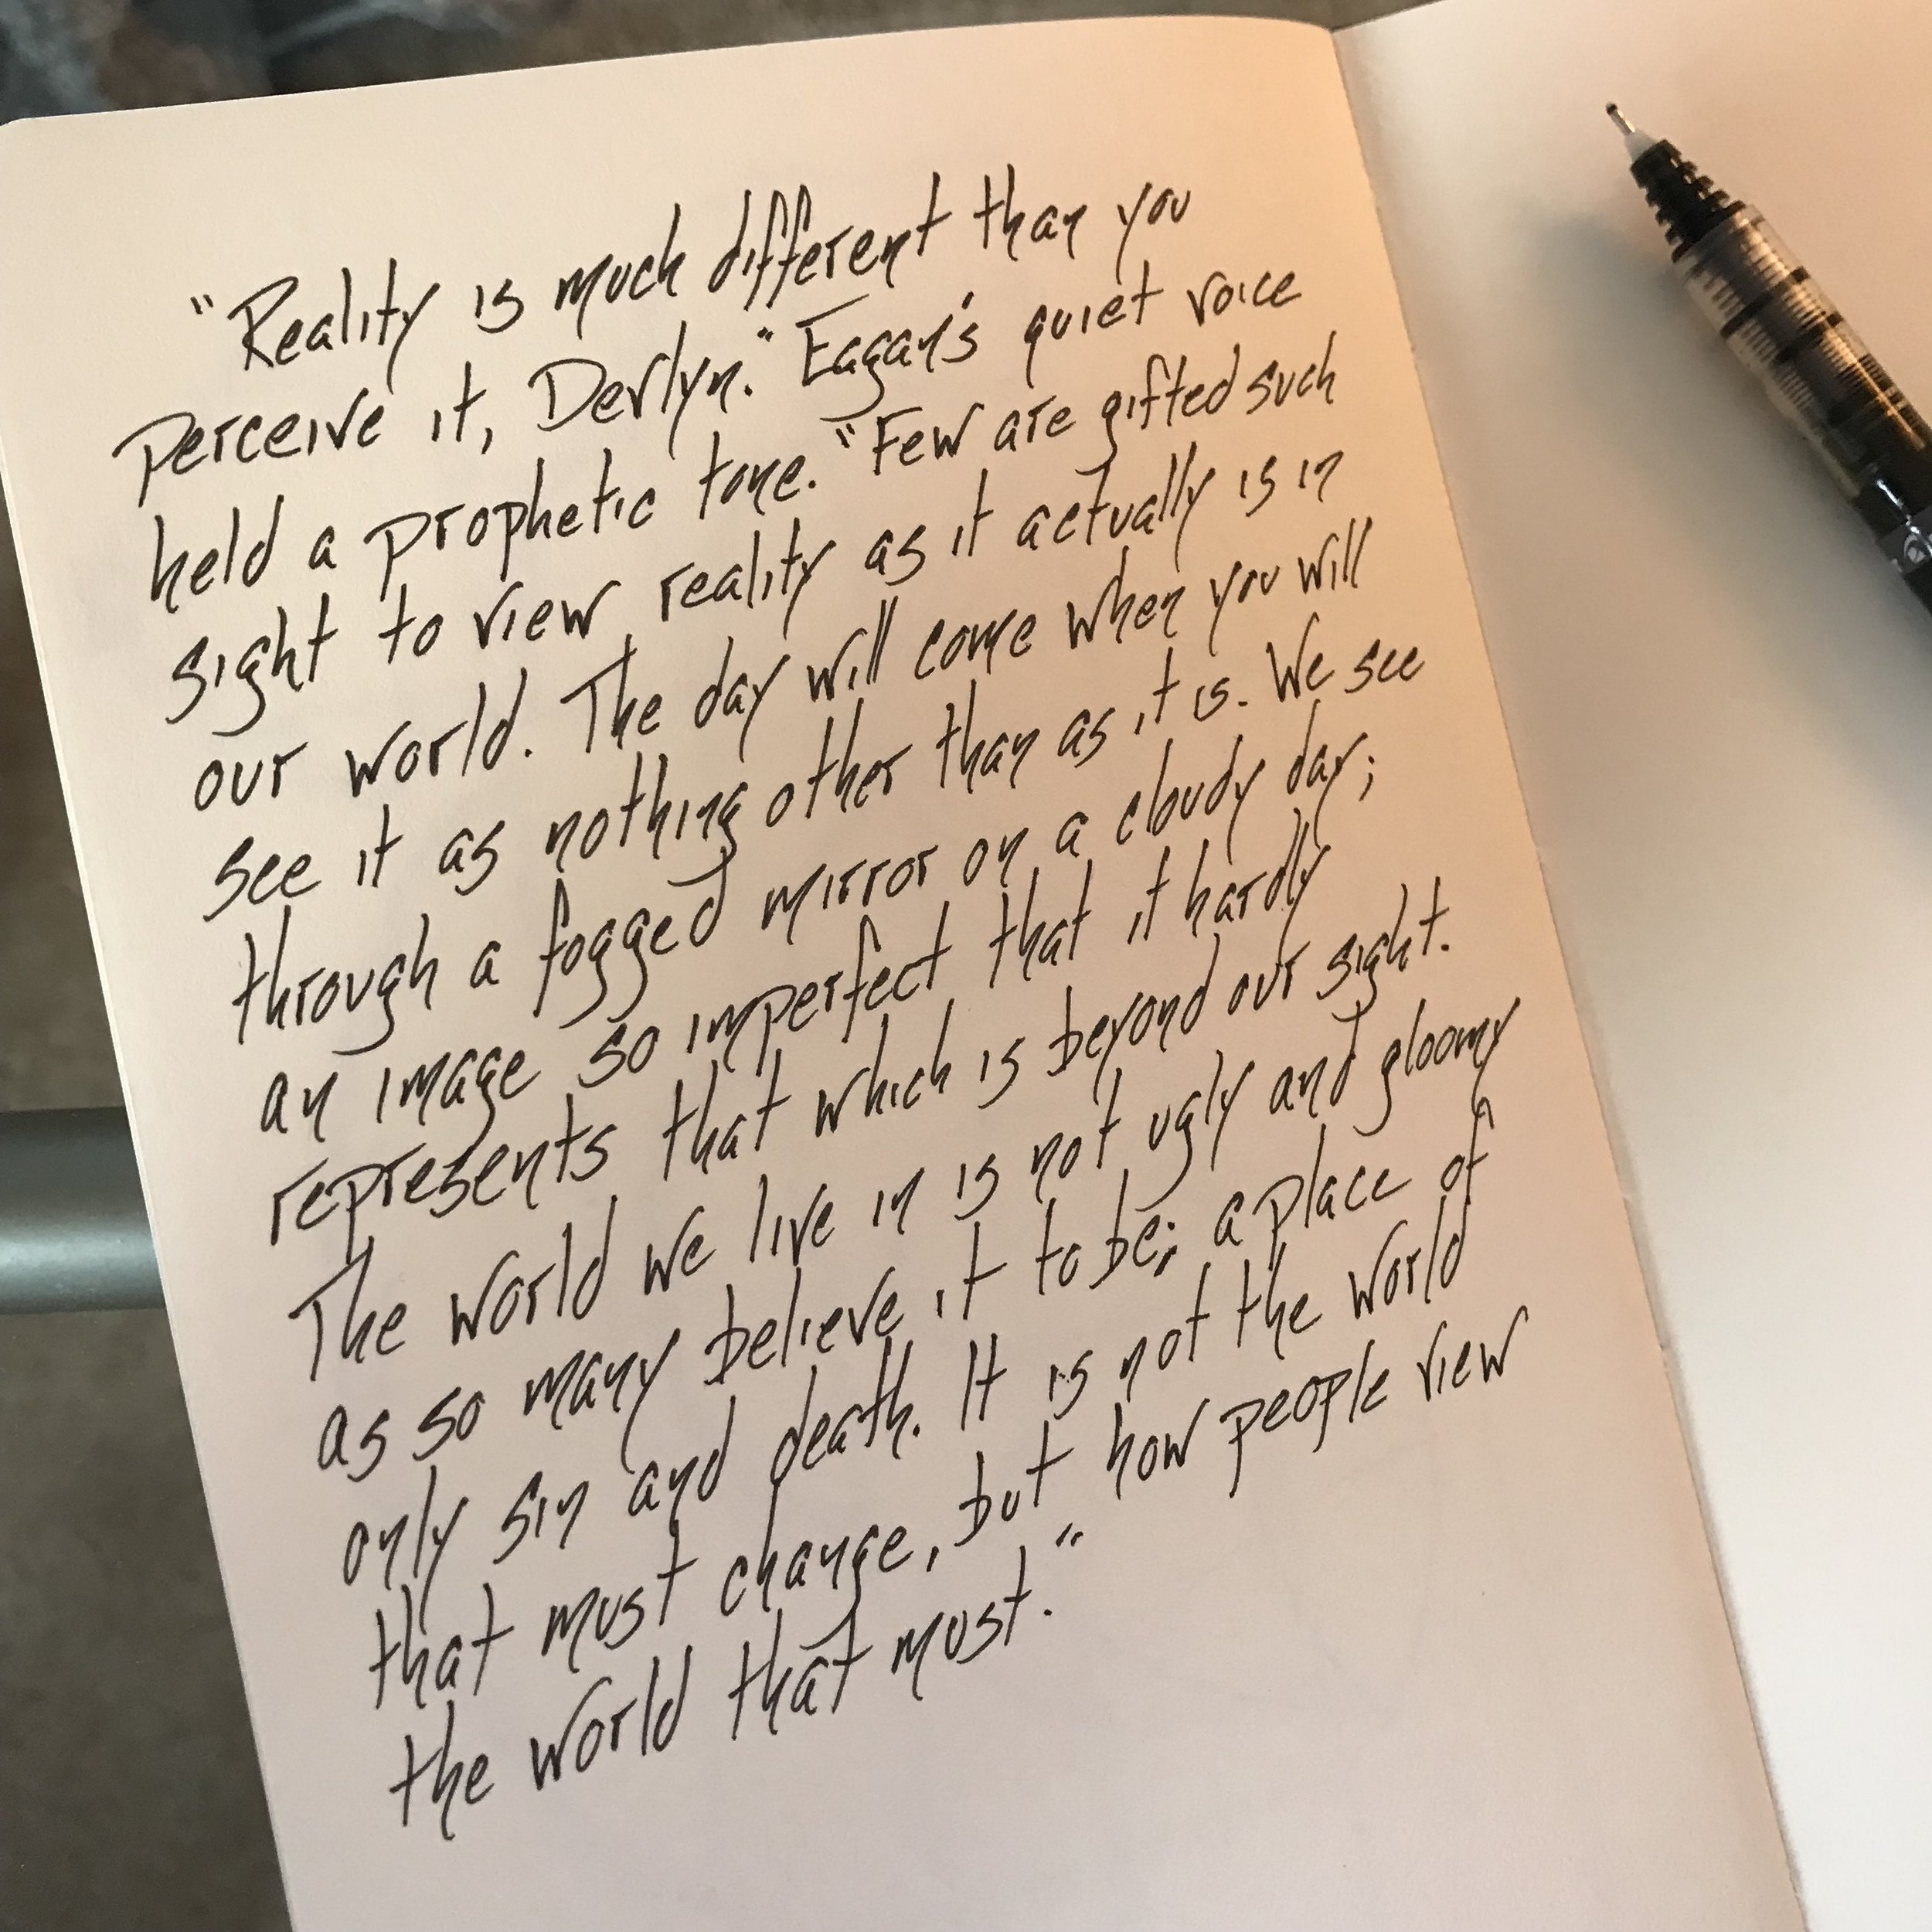 "Reality is much different than you
perceive it, Derlyn." Eagan's quiet voice
held a prophetic tone. "Few are gifted such
sight to view reality as it actually is in
our world. The day will come when you will
see it as nothing other than as it is. We see
through a fogged mirror on a cloudy day;
an image so imperfect that it hardly
represents that which is beyond our sight.
The world we live in is not ugly and gloomy
as so many believe it to be; a place of
only sin and death. It is not the world
that must change, but how people view
the world that must."